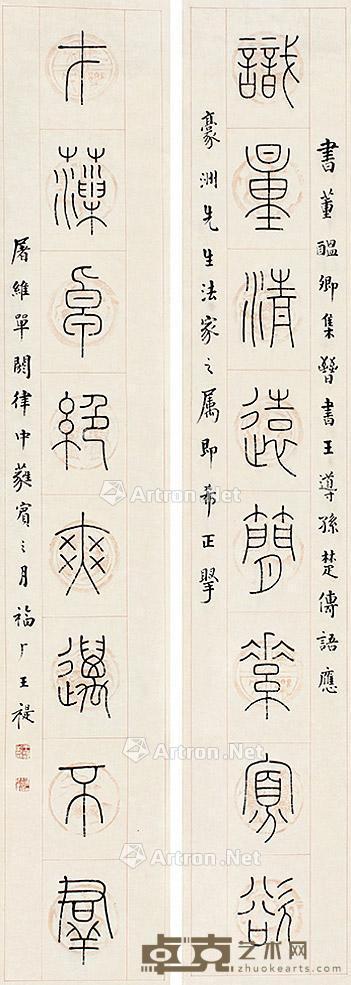 書董醞卿集晉書王導孫楚傳語應
識量清遠簡素寡欲
豪洲先生法家之属即希正
才藻卓絕爽邁不羣
屠維單閼律中蕤賓之月福厂王禔
Artron.Net
Artron.Net
Artron.Net
Artron.Net
卓克艺术网
zhuokearts.com